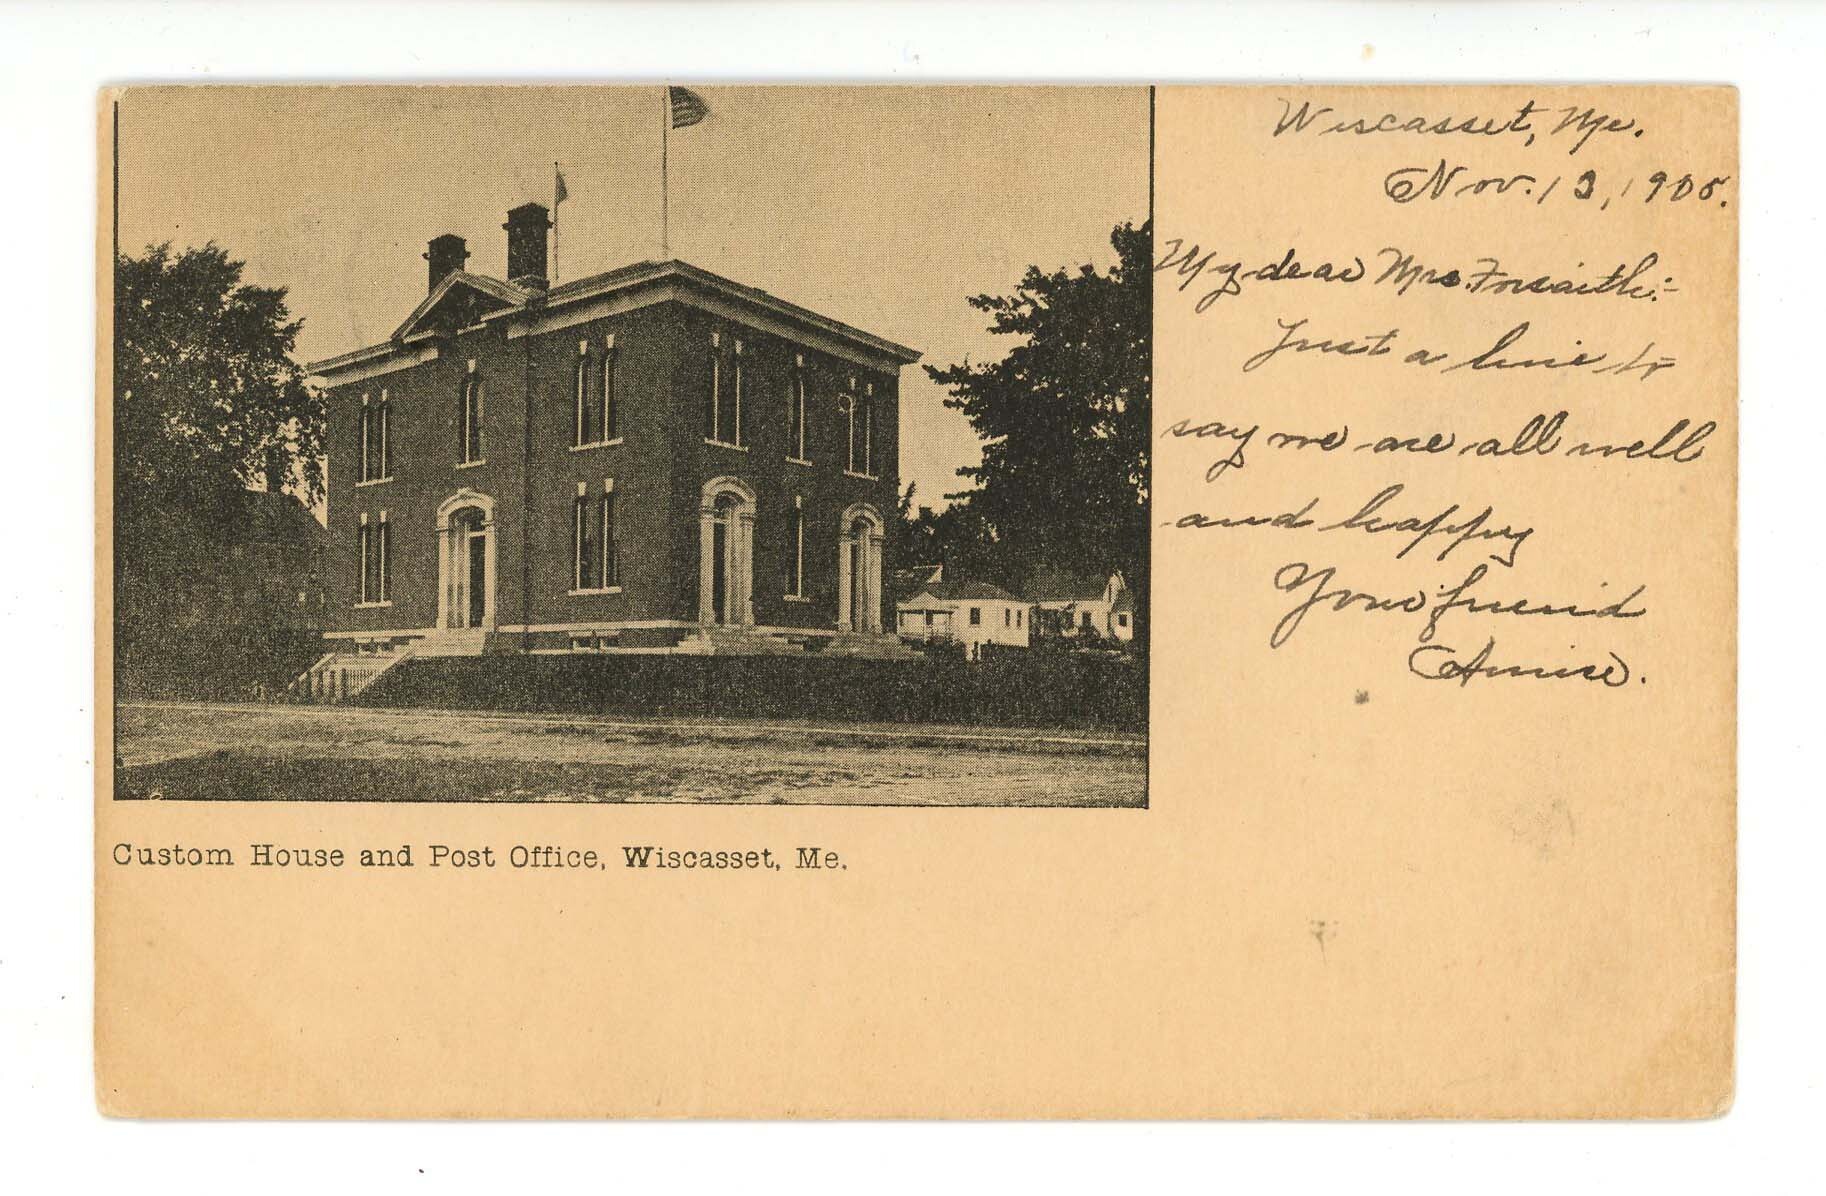 Wiscasset, Me.
Nov. 13, 1905.
My dear Mrs. Forsaith:-
Just a line to
say we are all well
and happy
Your friend
Annie.
Custom House and Post Office, Wiscasset, Me.